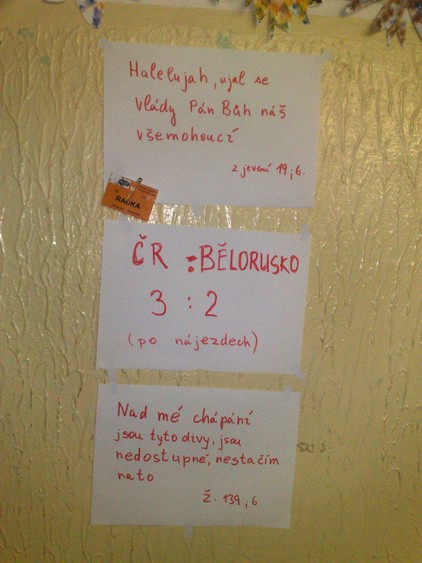 Halelujah, ujal se
vlády Pán Bůh náš
všemohoucí
zjevení 19,6.
RADKA
ČR : BĚLORUSKO
3 : 2
(po nájezdech)
Nad mé chápání
jsou tyto divy, jsou
nedostupné, nestačím
na to
Ž. 139,6